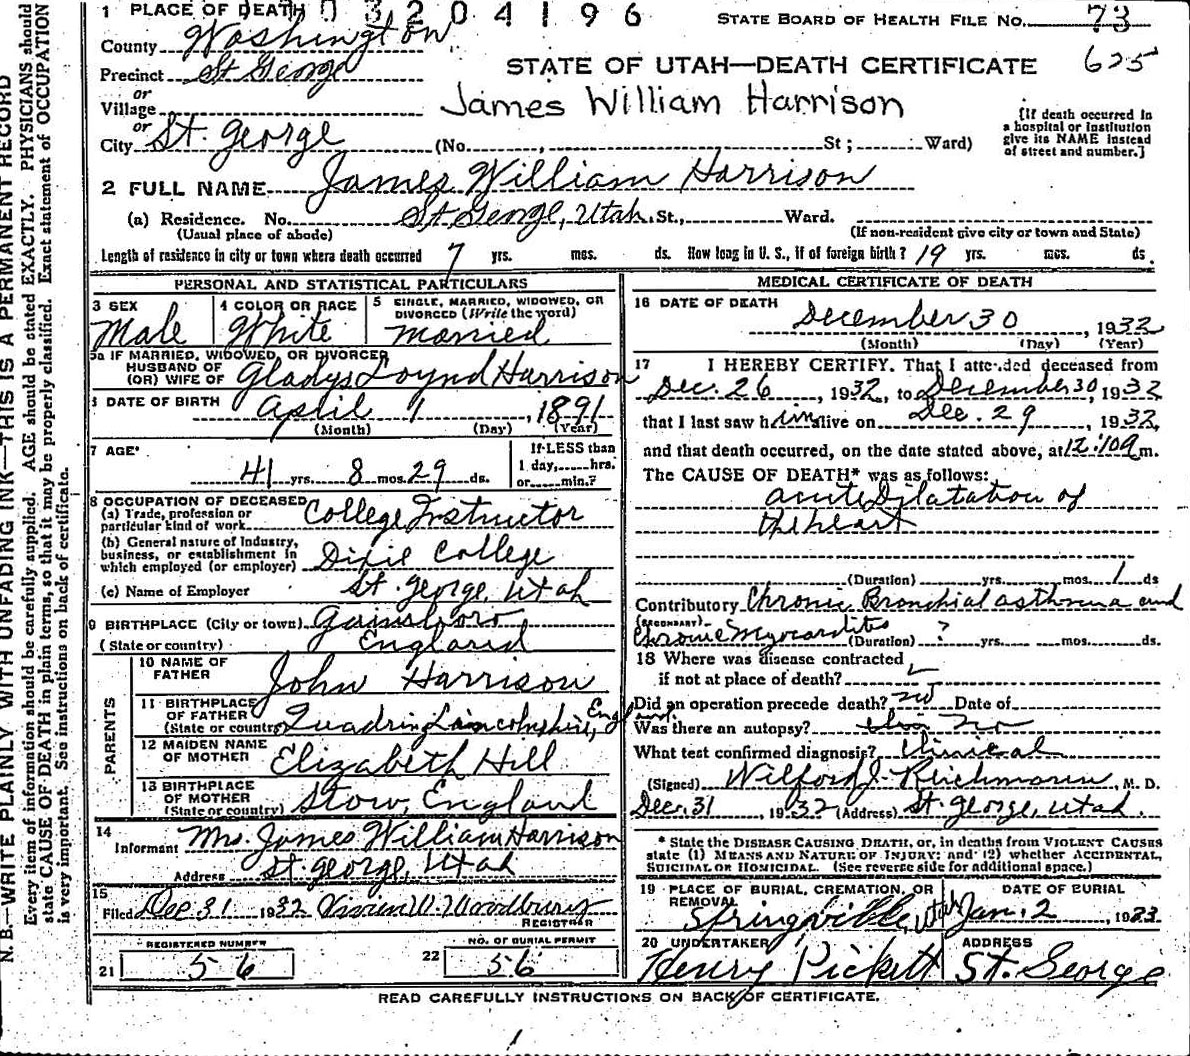 1 PLACE OF DEATH 03204196 STATE BOARD OF HEALTH FILE No. 73
County Washington
Precinct St George STATE OF UTAH—DEATH CERTIFICATE 625
or
Village James William Harrison
or
City St. George (No. , St; Ward) [If death occurred in a hospital or institution give its NAME instead of street and number.]
2 FULL NAME James William Harrison
(a) Residence. No. St George, Utah. St., Ward.
(Usual place of abode) (If non-resident give city or town and State)
Length of residence in city or town where death occurred 7 yrs. mos. ds. How long in U. S., if of foreign birth? 19 yrs. mos. ds.
PERSONAL AND STATISTICAL PARTICULARS
3 SEX 4 COLOR OR RACE 5 SINGLE, MARRIED, WIDOWED, OR
DIVORCED (Write the word)
Male White married
5a IF MARRIED, WIDOWED, OR DIVORCED
HUSBAND OF
(OR) WIFE OF Gladys Loynd Harrison
DATE OF BIRTH
April 1, 1891
(Month) (Day) (Year)
7 AGE If LESS than
41 yrs. 8 mos. 29 ds. 1 day, hrs.
or min.?
8 OCCUPATION OF DECEASED
(a) Trade, profession or
particular kind of work College Instructor
(b) General nature of Industry,
business, or establishment in
which employed (or employer) Dixie College
(c) Name of Employer St. George, Utah
9 BIRTHPLACE (City or town) Gainsboro
(State or country) England
PARENTS
10 NAME OF
FATHER John Harrison
11 BIRTHPLACE
OF FATHER
(State or country) Quadring Lincolnshire, England.
12 MAIDEN NAME
OF MOTHER Elizabeth Hill
13 BIRTHPLACE
OF MOTHER
(State or country) Stow, England
14
Informant Mrs. James William Harrison
Address St. George, Utah
15
Filed Dec 31 1932 Vivian W. Woodbury
REGISTRAR
REGISTERED NUMBER NO. OF BURIAL PERMIT
21 56 22 56
MEDICAL CERTIFICATE OF DEATH
16 DATE OF DEATH
December 30, 1932
(Month) (Day) (Year)
17 I HEREBY CERTIFY. That I attended deceased from
Dec. 26, 1932, to December 30, 1932
that I last saw him alive on Dec. 29, 1932,
and that death occurred, on the date stated above, at 12:10 a m.
The CAUSE OF DEATH* was as follows:
acute Dilatation of
the heart
(Duration) yrs. mos. 1 ds
Contributory Chronic Bronchial asthma and
(SECONDARY)
Chronic Myocarditis (Duration) ? yrs. mos. ds.
18 Where was disease contracted
if not at place of death?
Did an operation precede death? no Date of
Was there an autopsy? no
What test confirmed diagnosis? Clinical
(Signed) Wilford J. Reichmann, M. D.
Dec. 31, 1932 (Address) St. George, Utah.
* State the DISEASE CAUSING DEATH, or, in deaths from VIOLENT CAUSES
state (1) MEANS AND NATURE OF INJURY; and (2) whether ACCIDENTAL,
SUICIDAL OR HOMICIDAL. (See reverse side for additional space.)
19 PLACE OF BURIAL, CREMATION, OR
REMOVAL DATE OF BURIAL
Springville, Utah Jan. 2, 1933
20 UNDERTAKER ADDRESS
Henry Pickett St. George
READ CAREFULLY INSTRUCTIONS ON BACK OF CERTIFICATE.
N. B.—WRITE PLAINLY WITH UNFADING INK—THIS IS A PERMANENT RECORD
Every item of information should be carefully supplied. AGE should be stated EXACTLY. PHYSICIANS should
state CAUSE OF DEATH in plain terms, so that it may be properly classified. Exact statement of OCCUPATION
is very important. See instructions on back of certificate.